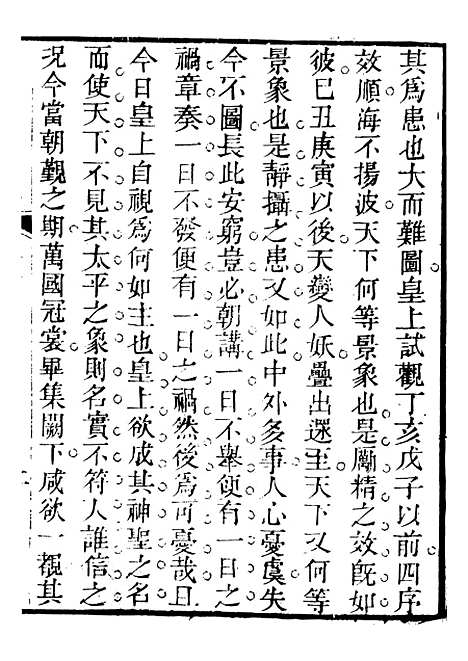 其爲患也大而難圖皇上試觀丁亥戊子以前四序
效順海不揚波天下何等景象也是勵精之效旣如
彼巳丑庚寅以後天變人妖疊出迭至天下又何等
景象也是靜攝之患又如此中外多事人心憂虞失
今不圖長此安窮豈必朝講一日不舉便有一日之
禍章奏一日不發便有一日之禍然後爲可憂哉且
今日皇上自視爲何如主也皇上欲成其神聖之名
而使天下不見其太平之象則名實不符人誰信之
况今當朝覲之期萬國冠裳畢集闕下咸欲一覩其